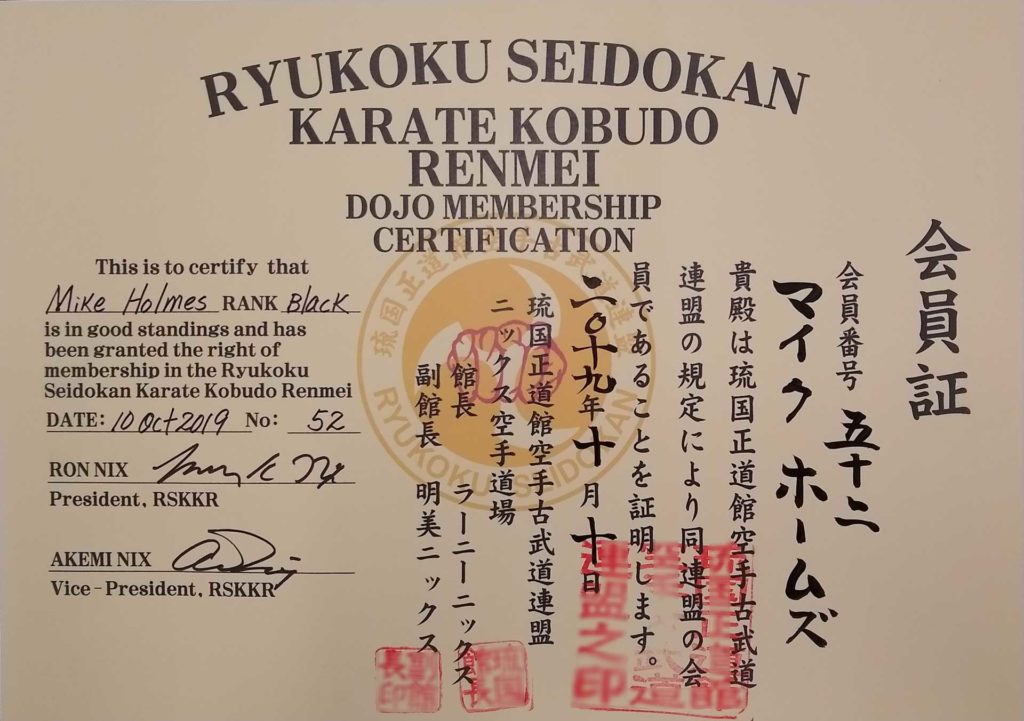 RYUKOKU SEIDOKAN
KARATE KOBUDO
RENMEI
DOJO MEMBERSHIP
CERTIFICATION
This is to certify that
Mike Holmes RANK Black
is in good standings and has
been granted the right of
membership in the Ryukoku
Seidokan Karate Kobudo Renmei
DATE: 10 Oct 2019 No: 52
RON NIX
President, RSKKR
AKEMI NIX
Vice-President, RSKKR
会員証
会員番号 五十二
マイク ホームズ
貴殿は琉国正道館空手古武道
連盟の規定により同連盟の会
員であることを証明します。
二〇十九年十月十日
琉国正道館空手古武道連盟
ニックス空手道場
館長 ラーニーニックス
副館長 明美ニックス
琉国正道館空手古武道連盟
RYUKOKU SEIDOKAN
連盟之印
副館
長印